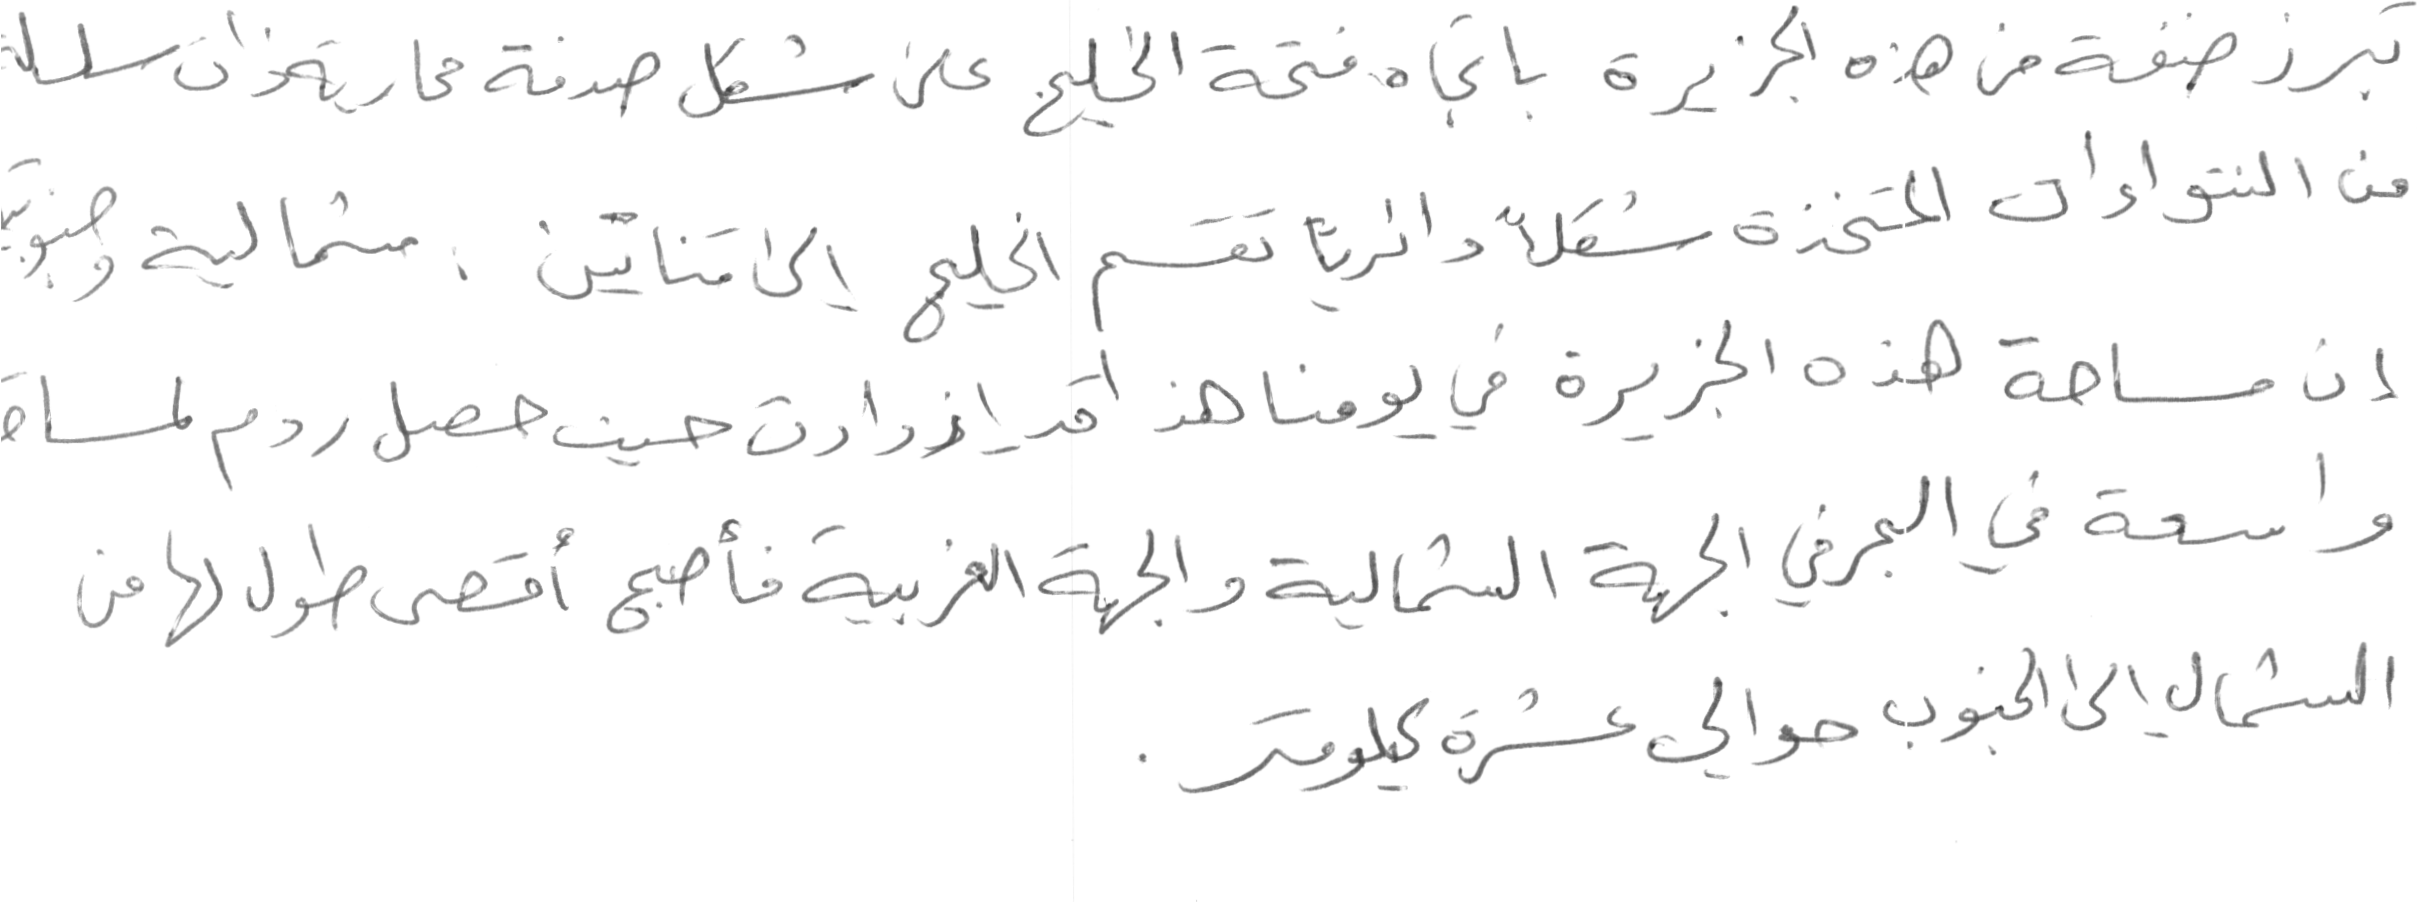 تبرز ضفة من هذه الجزيرة باتجاه فتحة الخليج على شكل صدفة محارية ذات سلسلة
من النتواءات المتخذة شكلاً دائريًا تقسم الخليج إلى قناتين : شمالية وجنوبية
إن مساحة هذه الجزيرة في يومنا هذا قد إزدادت حيث حصل ردم لمساحة
واسعة في البحر في الجهة الشمالية والجهة الغربية فأصبح أقصى طول لها من
الشمال إلى الجنوب حوالي عشرة كيلومتر .